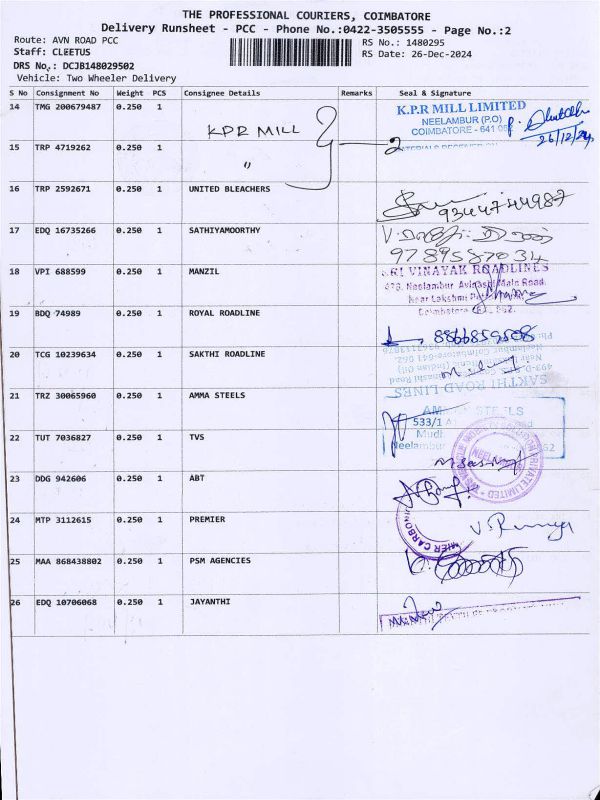 THE PROFESSIONAL COURIERS, COIMBATORE
Delivery Runsheet - PCC - Phone No.:0422-3505555 - Page No.:2
Route: AVN ROAD PCC
RS No.: 1480295
Staff: CLEETUS
RS Date: 26-Dec-2024
DRS No.: DCJB148029502
Vehicle: Two Wheeler Delivery
S No Consignment No Weight PCS Consignee Details Remarks Seal & Signature
14 TMG 200679487 0.250 1 KPR MILL
K.P.R MILL LIMITED
NEELAMBUR (P.O)
COIMBATORE - 641 062
26/12/24
15 TRP 4719262 0.250 1 " 2
16 TRP 2592671 0.250 1 UNITED BLEACHERS
9344744987
17 EDQ 16735266 0.250 1 SATHIYAMOORTHY
9789587034
18 VPI 688599 0.250 1 MANZIL
SRI VINAYAK ROADLINES
Neelambur Avinashi Main Road,
Near Lakshmi
Coimbatore
19 BDQ 74989 0.250 1 ROYAL ROADLINE
8866859508
20 TCG 10239634 0.250 1 SAKTHI ROADLINE
SAKTHI ROAD LINES
21 TRZ 30065960 0.250 1 AMMA STEELS
STEELS
533/1
Neelambur
22 TUT 7036827 0.250 1 TVS
PRIVATE LIMITED
23 DDG 942606 0.250 1 ABT
24 MTP 3112615 0.250 1 PREMIER
CARBON
25 MAA 868438802 0.250 1 PSM AGENCIES
26 EDQ 10706068 0.250 1 JAYANTHI